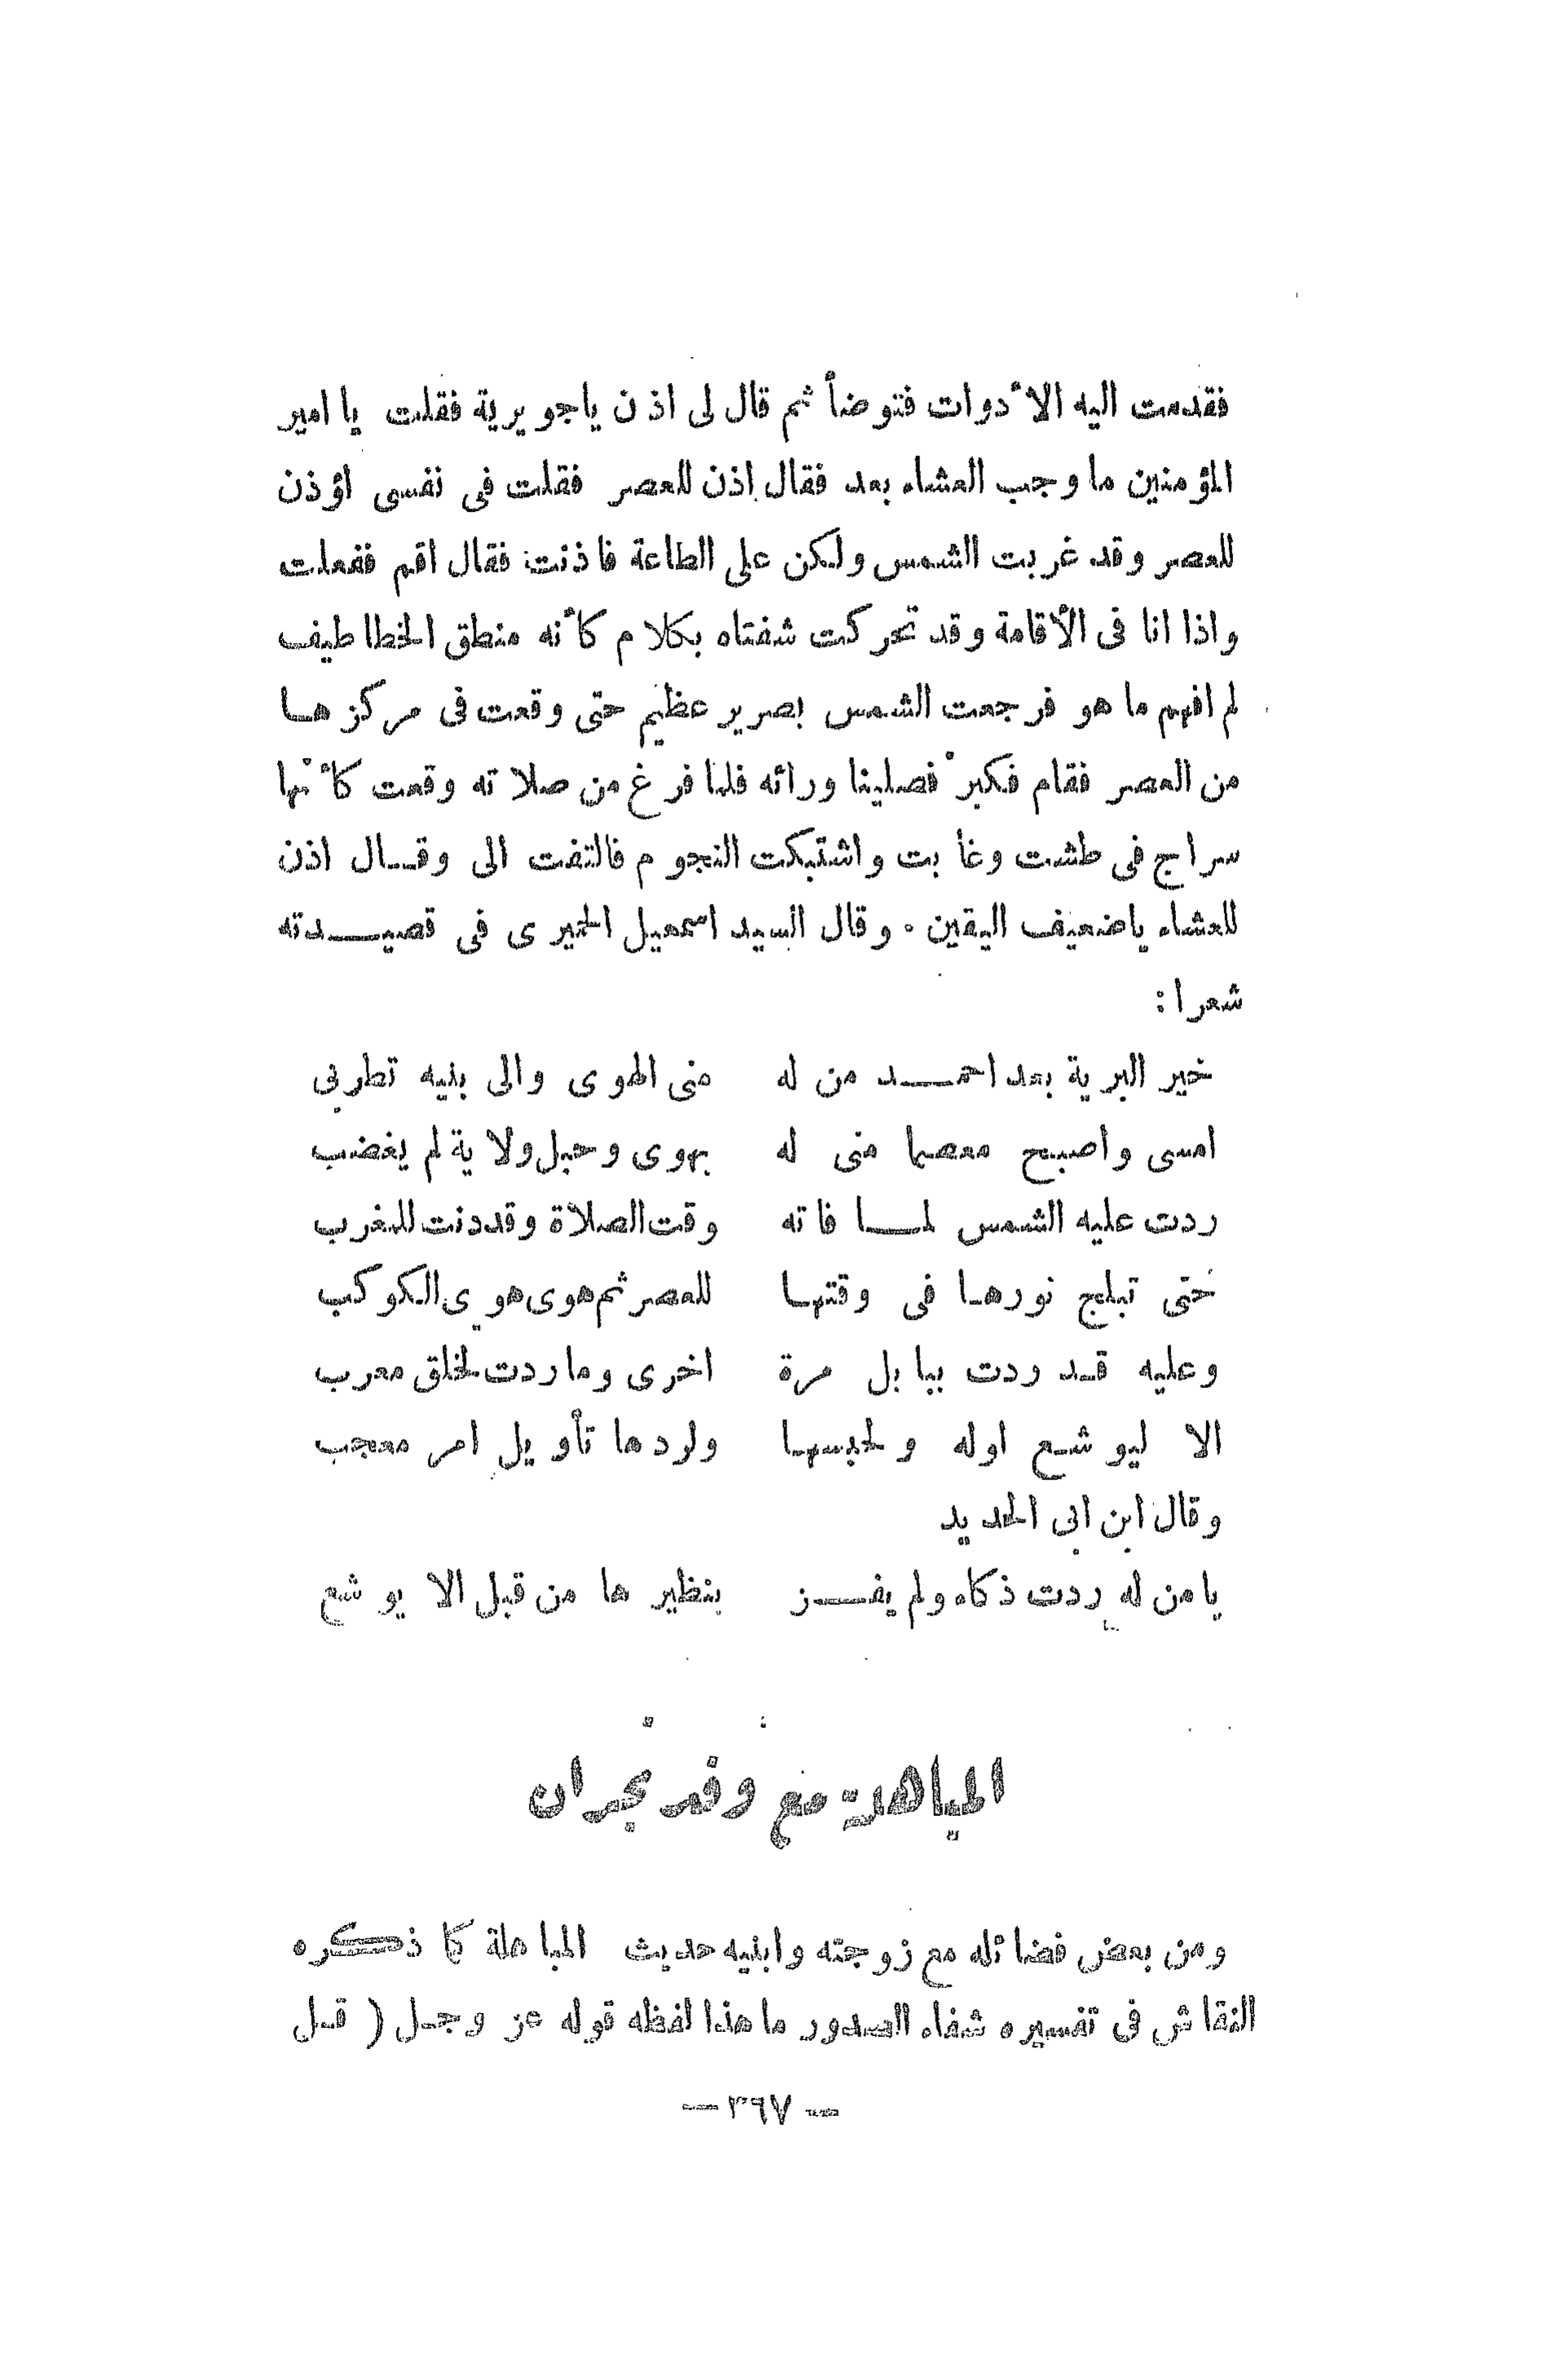 فقدمت اليه الأدوات فتوضأ ثم قال لى اذن ياجويرية فقلت يا امير
المؤمنين ما وجب العشاء بعد فقال اذن للعصر فقلت فى نفسى اؤذن
للعصر وقد غربت الشمس ولكن على الطاعة فاذنت فقال اقم ففعلت
واذا انا فى الأقامة وقد تحركت شفتاه بكلام كأنه منطق الخطاطيف
لم افهم ما هو فرجعت الشمس بصرير عظيم حتى وقعت فى مركزها
من العصر فقام فكبر فصلينا ورائه فلما فرغ من صلاته وقعت كأنها
سراج فى طشت وغابت واشتبكت النجوم فالتفت الى وقال اذن
للعشاء ياضعيف اليقين . وقال السيد اسمعيل الحميرى فى قصيدته
شعرا :
خير البرية بعد احمد من له منى الهوى والى بنيه تطربى
امسى واصبح معصما منى له بهوى وحبل ولاية لم يغضب
ردت عليه الشمس لما فاته وقت الصلاة وقد دنت للمغرب
حتى تبلج نورها فى وقتها للعصر ثم هوى هوي الكوكب
وعليه قد ردت ببابل مرة اخرى وما ردت لخلق معرب
الا ليوشع اوله ولحبسها ولردها تأويل امر معجب
وقال ابن ابى الحديد
يا من له ردت ذكاه ولم يفز بنظيرها من قبل الا يوشع
المباهلة مع وفد نجران
ومن بعض فضائله مع زوجته وابنيه حديث المباهلة كما ذكره
النقاش فى تفسيره شفاء الصدور ما هذا لفظه قوله عز وجل ( قل
— ٣٦٧ —